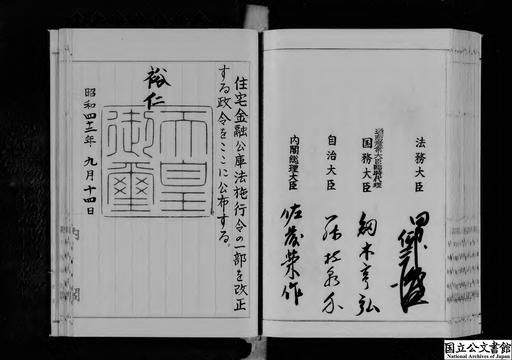 法務大臣
国務大臣
自治大臣
内閣総理大臣
佐藤栄作
住宅金融公庫法施行令の一部を改正
する政令をここに公布する。
裕仁
天皇
御璽
昭和四十三年九月十四日
内閣
国立公文書館
National Archives of Japan